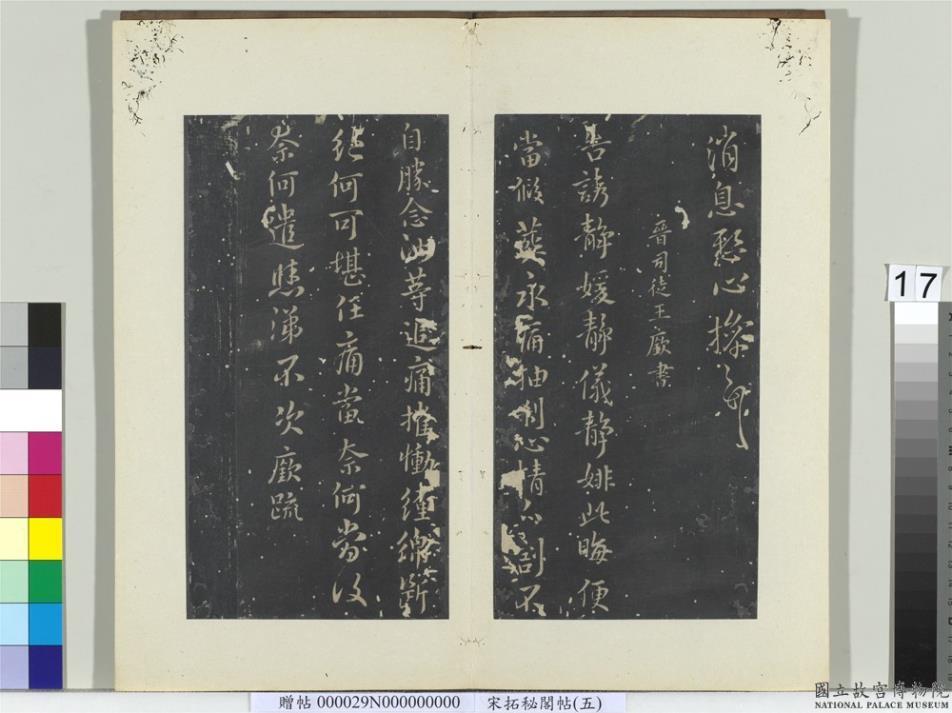 消息愁心操耶
晉司徒王廞書
告誘靜媛靜儀靜姚此晦便
當假葬永痛抽割心情分割不
自勝念汝等追痛摧慟纏綿斷
絕何可堪任痛當奈何當復
奈何遣悲涕不次廞疏
17
贈帖 000029N000000000 宋拓秘閣帖(五)
國立故宮博物院
NATIONAL PALACE MUSEUM